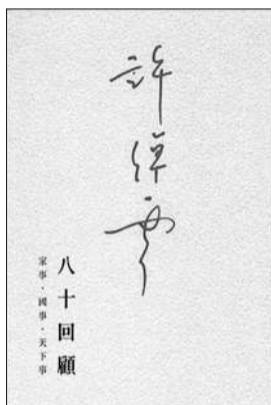 許倬雲
八十回顧
家事·國事·天下事